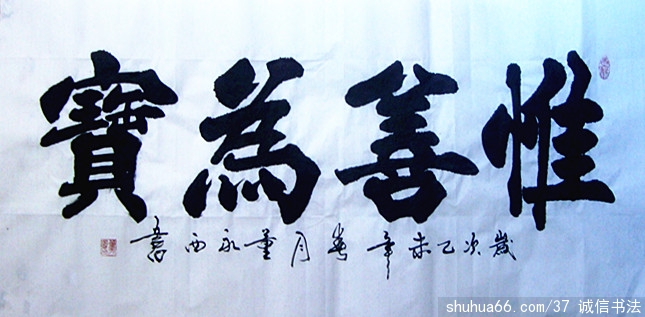 惟善為寶
歲次乙未年春月董永西書
shuhua66.com/37 诚信书法